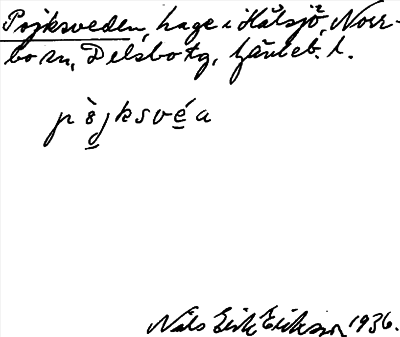 Pojksveden, hage i Hålsjö, Norr-
bo sn, Delsbo tg, Gävleb. l.
pò̱jksvé̱a
Nils Erik Eriksson 1936.